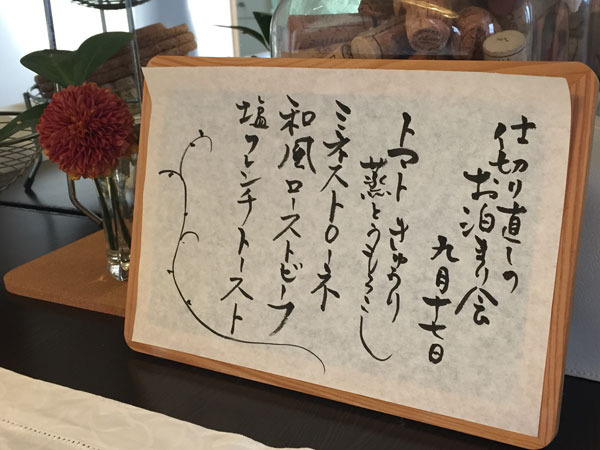 仕切り直しの
お泊まり会
九月十七日
トマト きゅうり
蒸とうもろこし
ミネストローネ
和風ローストビーフ
塩フレンチトースト